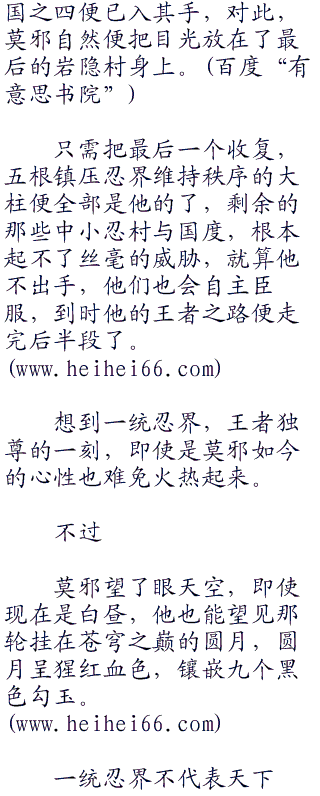 国之四便已入其手，对此，
莫邪自然便把目光放在了最
后的岩隐村身上。(百度“有
意思书院”)
只需把最后一个收复，
五根镇压忍界维持秩序的大
柱便全部是他的了，剩余的
那些中小忍村与国度，根本
起不了丝毫的威胁，就算他
不出手，他们也会自主臣
服，到时他的王者之路便走
完后半段了。
(www.heihei66.com)
想到一统忍界，王者独
尊的一刻，即使是莫邪如今
的心性也难免火热起来。
不过
莫邪望了眼天空，即使
现在是白昼，他也能望见那
轮挂在苍穹之巅的圆月，圆
月呈猩红血色，镶嵌九个黑
色勾玉。
(www.heihei66.com)
一统忍界不代表天下